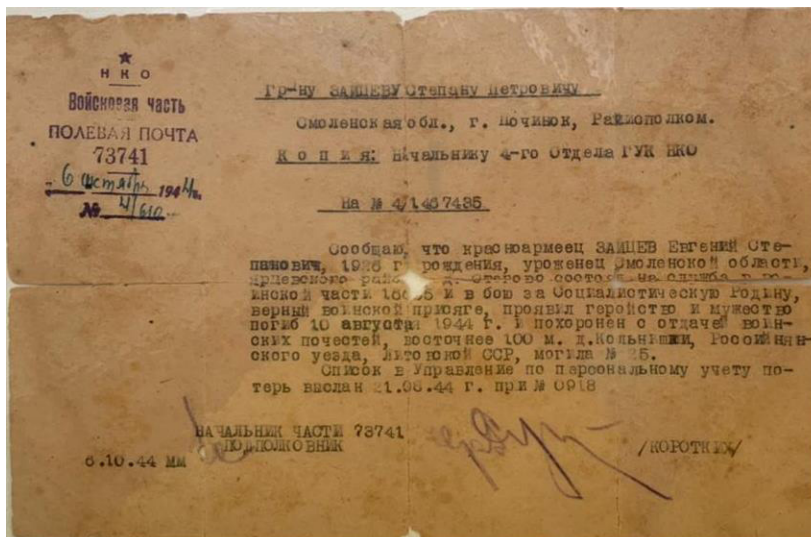 НКО
Войсковая часть
ПОЛЕВАЯ ПОЧТА
73741
6 октября 1944 г.
№ 4/610
Гр-ну ЗАЙЦЕВУ Степану Петровичу
Смоленская обл., г. Починок, Райисполком.
Копия: Начальнику 4-го Отдела ГУК НКО
На № 4/1467435
Сообщаю, что красноармеец ЗАЙЦЕВ Евгений Сте-
панович, 1926 г. рождения, уроженец Смоленской области,
состоял на служба в во-
инской части и в бою за Социалистическую Родину,
верный воинской присяге, проявил геройство и мужество
погиб 10 августа 1944 г. и похоронен с отдачей воин-
ских почестей, восточнее 100 м. д.Кольнишки, Россиян-
ского уезда, Литовской ССР, могила № 25.
Список в Управление по персональному учету по-
терь выслан 21.08.44 г. при № 0918
НАЧАЛЬНИК ЧАСТИ 73741
ПОДПОЛКОВНИК
/КОРОТКИХ/
6.10.44 ММ